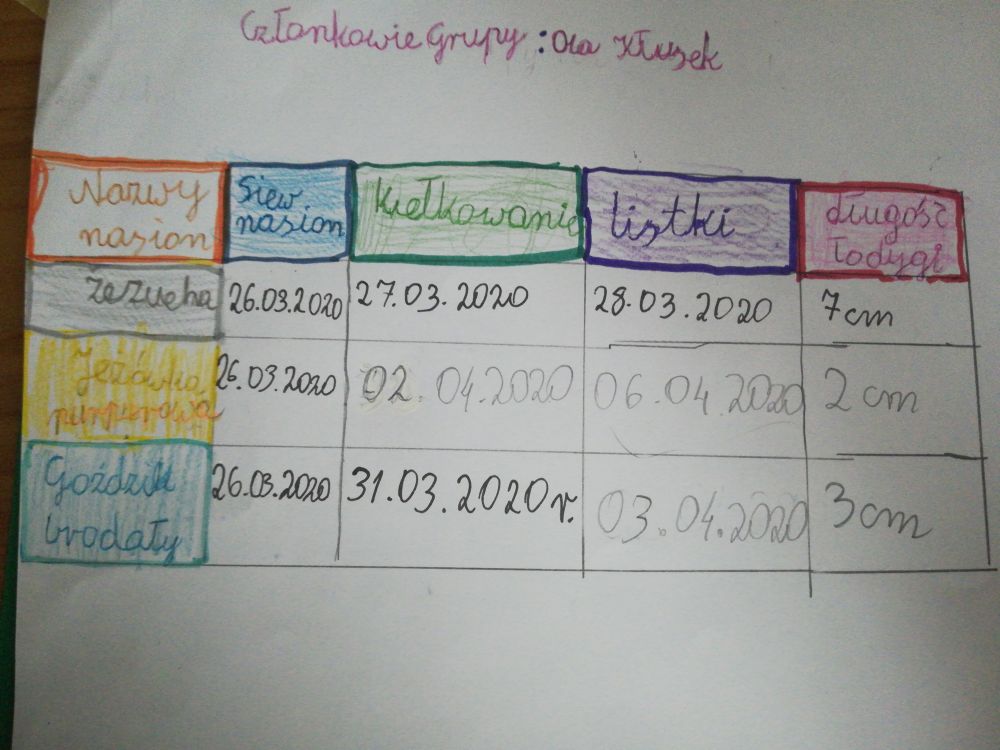 Członkowie Grupy: Ola Kłusek
Nazwy nasion Siew nasion Kiełkowanie listki długość łodygi
Rzeżucha 26.03.2020 27.03.2020 28.03.2020 7 cm
Jeżówka purpurowa 26.03.2020 02.04.2020 06.04.2020 2 cm
Goździk brodaty 26.03.2020 31.03.2020 r. 03.04.2020 3 cm